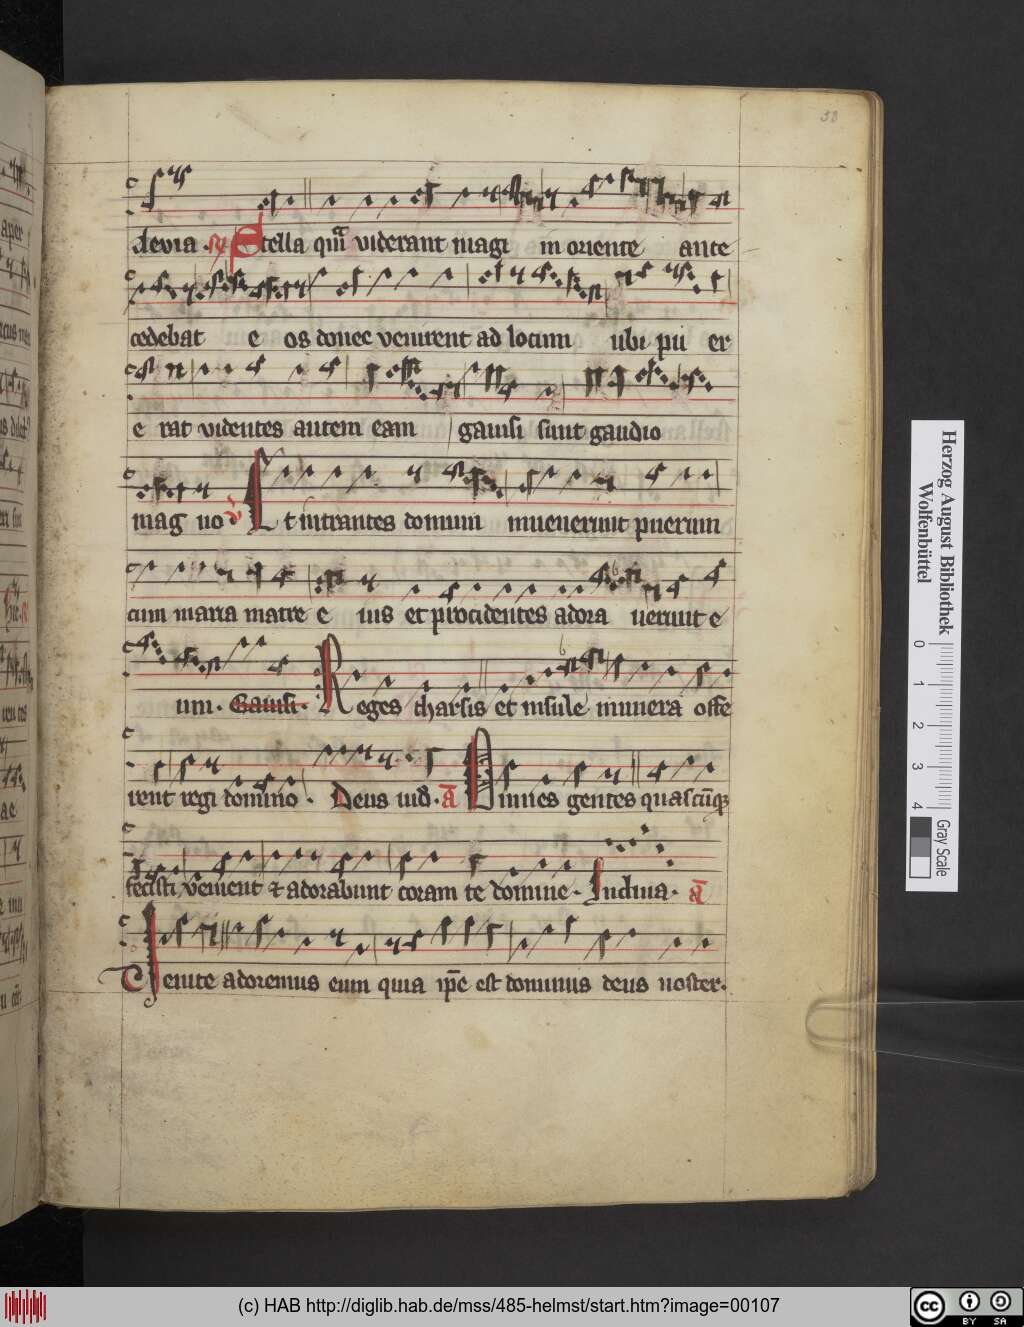 38
devia. R Stella quā viderant magi in oriente ante
cedebat e os donec venirent ad locum ubi pu er
e rat videntes autem eam gavisi sunt gaudio
mag no v Et intrantes domum invenerunt puerum
cum maria matre e ius et procidentes adora verunt e
um. Gavisi. Reges tharsis et insule munera offe
rent regi domino. Deus iud. ā Omnes gentes quascūqꝫ
fecisti venient & adorabunt coram te domine. Inclina. ā
Venite adoremus eum quia ip̄e est dominus deus noster.
Herzog August Bibliothek
Wolfenbüttel
0 1 2 3 4
Gray Scale
(c) HAB http://diglib.hab.de/mss/485-helmst/start.htm?image=00107
cc BY SA